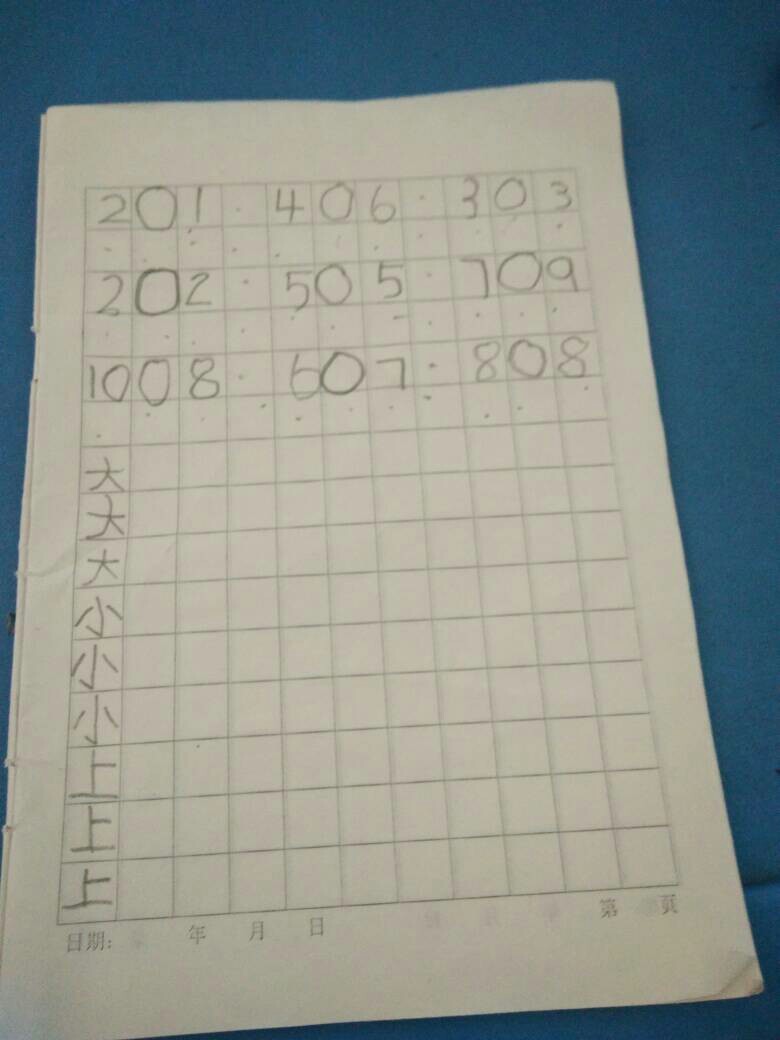 201 · 406 · 303
202 · 505 · 709
1008 · 607 · 808
大
大
大
小
小
小
上
上
上
日期: 年 月 日 第 页